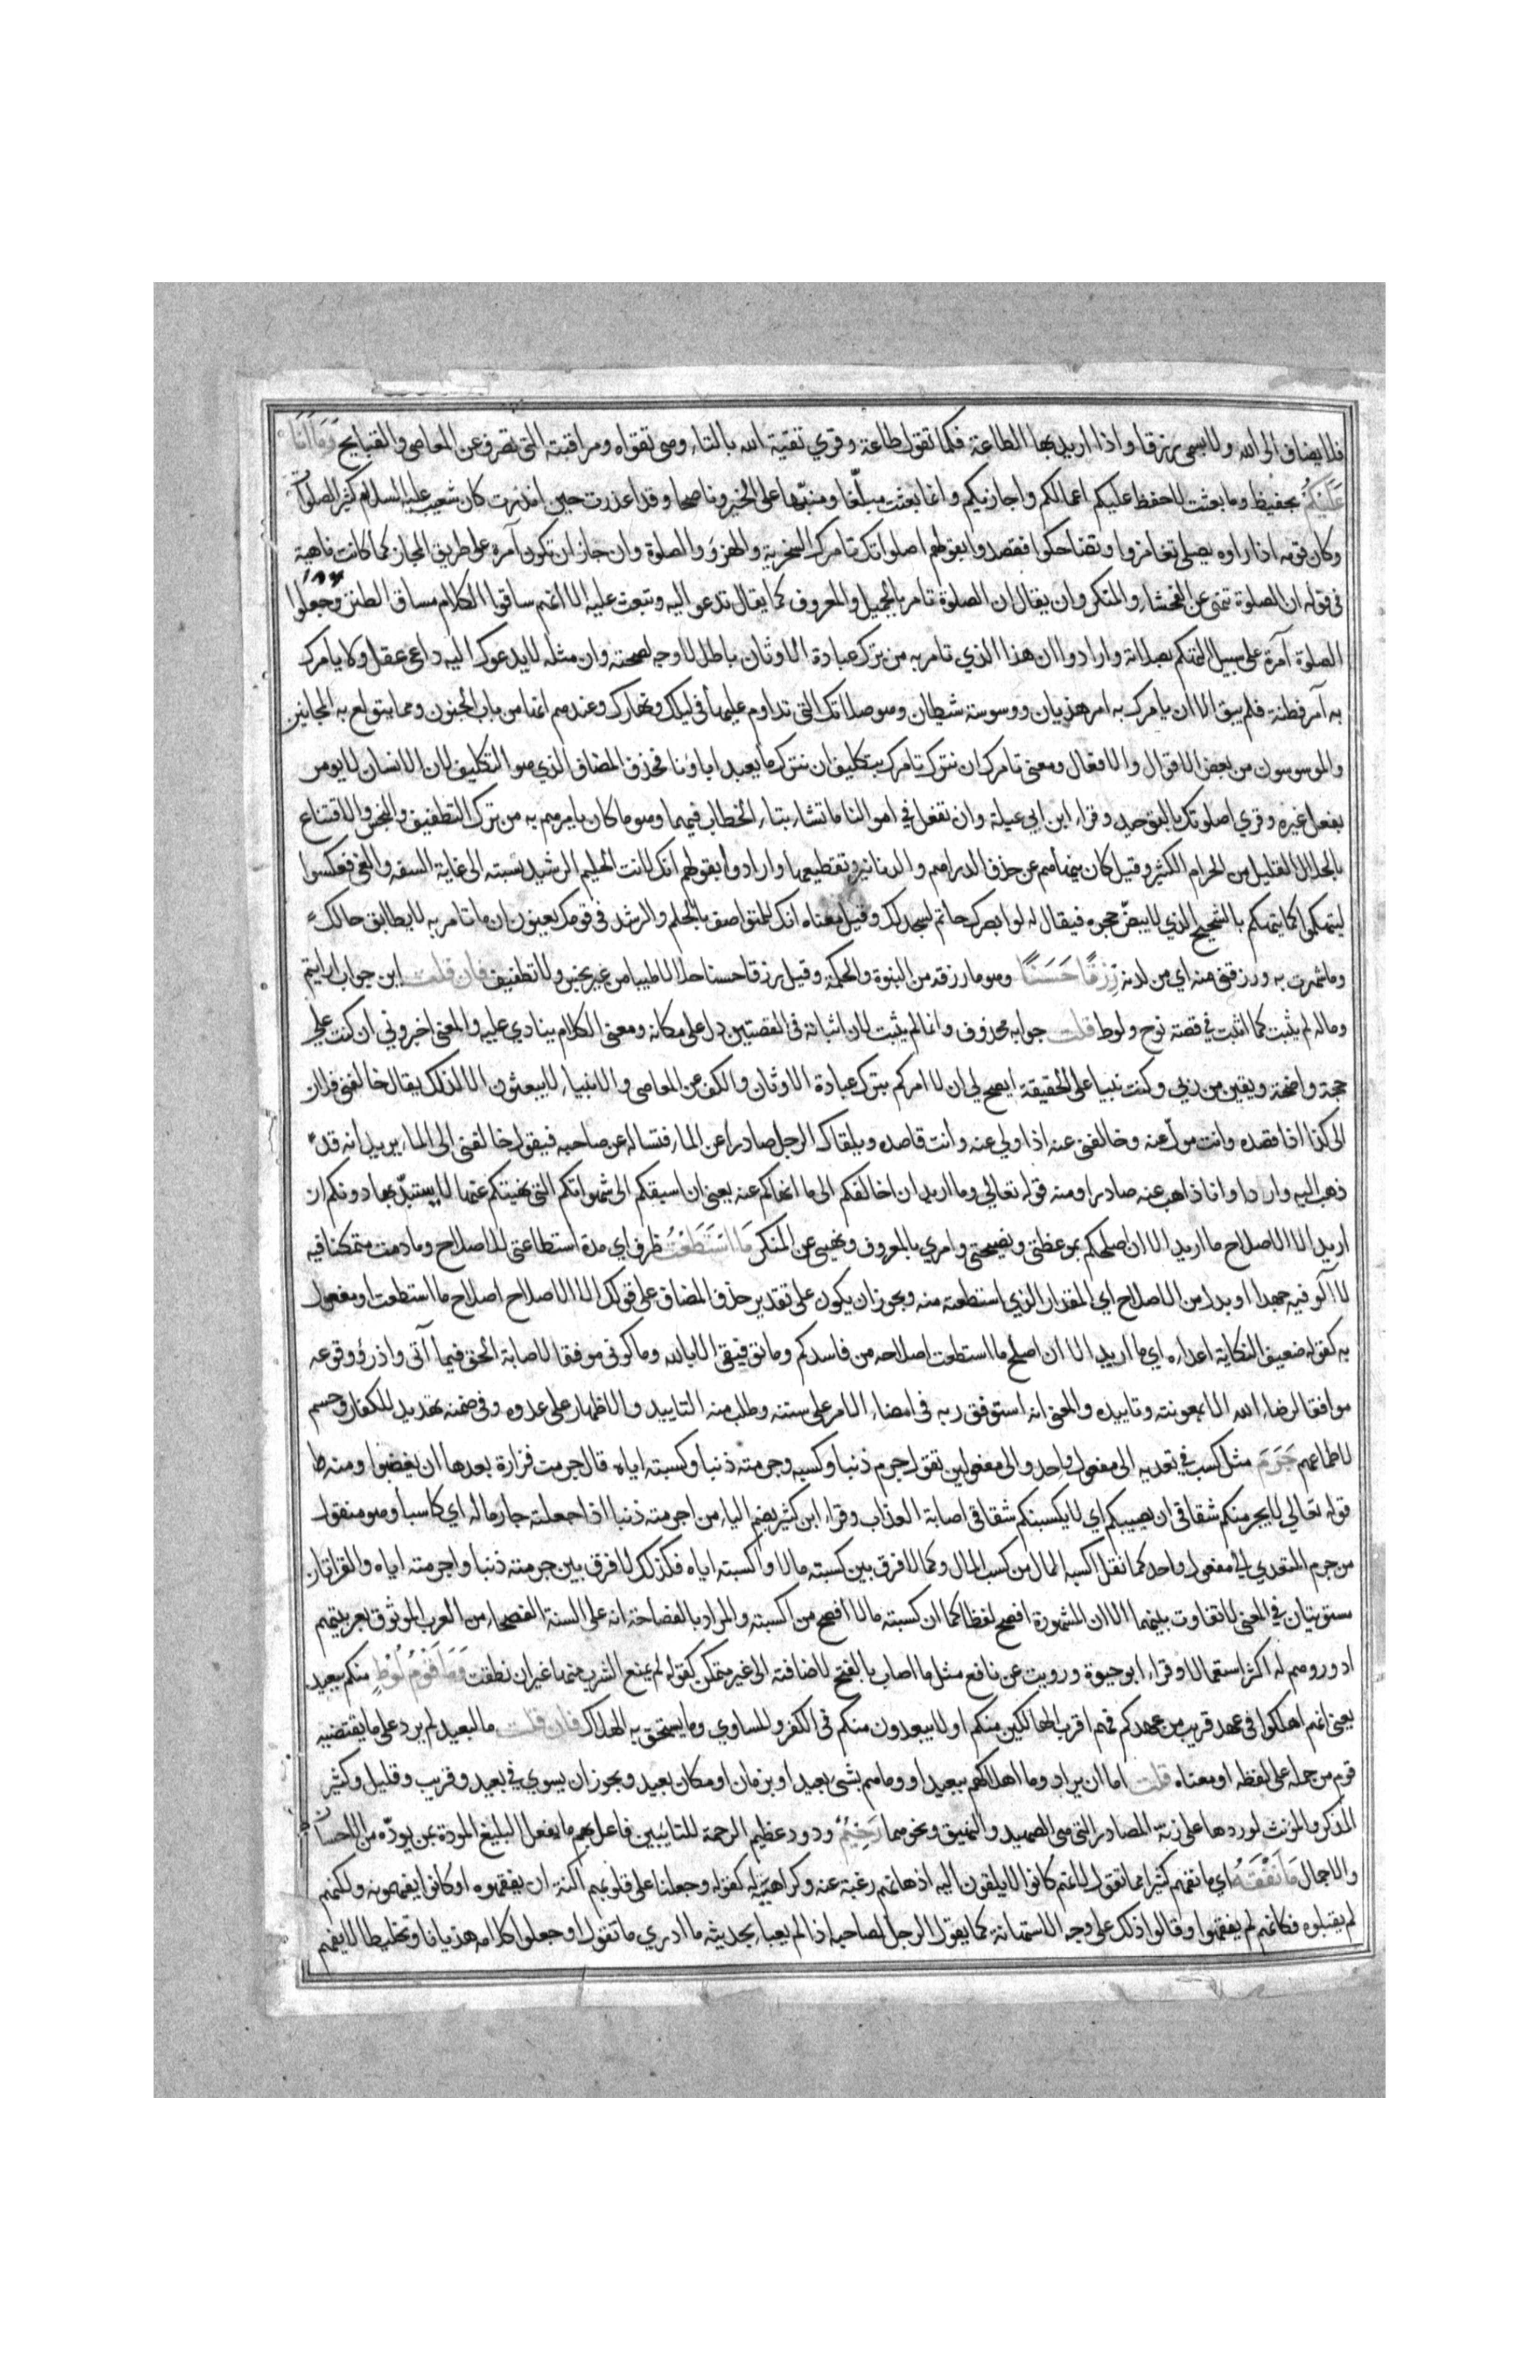 فلا يضاف الى الله ولا يسمى رزقا واذا اريد بها الطاعة فكما تقول طاعة وقري تقية الله بالتاء وهي تقواه ومراقبته التي تصرف عن المعاصي والقبايح وَمَا اَنَا
عَلَيْكُمْ بحفيظ وما بعثت لاحفظ عليكم اعمالكم واجازيكم وانما بعثت مبلّغا ومنبّها على الخير وناصحا وقد اعذرت حين انذرت كان شعيب عليه السلام كثير الصلوات
وكان قومه اذا راوه يصلي تغامزوا وتضاحكوا فقصدوا بقولهم اصلواتك تامرك السخرية والهزؤ والصلوة وان جاز ان تكون آمرة على طريق المجاز كما كانت ناهية
١٨٤
في قوله ان الصلوة تنهى عن الفحشاء والمنكر وان يقال ان الصلوة تامر بالجميل والمعروف كما يقال تدعو اليه وتبعث عليه الا انهم ساقوا الكلام مساق الطنز وجعلوا
الصلوة آمرة على سبيل التهكم بصلاته وارادوا ان هذا الذي تامر به من ترك عبادة الاوثان باطل لا وجه لصحته وان مثله لا يدعوك اليه داعي عقل ولا يامرك
به آمر فطنة فلم يبق الا ان يامرك به امر هذيان ووسوسة شيطان وهو صلاتك التي تداوم عليها في ليلك ونهارك وعندهم انها من باب الجنون ومما يتولع به المجانين
والموسوسون من بعض الاقوال والافعال ومعنى تامرك ان نترك تامرك بتكليف ان نترك ما يعبد اباؤنا فحذف المضاف الذي هو التكليف لان الانسان لا يومر
بفعل غيره وقري اصلوتك بالتوحيد وقراء ابن ابي عبلة وان تفعل في اموالنا ما تشاء بتاء الخطاب فيهما وهو ما كان يامرهم به من ترك التطفيف والبخس والاقتناع
بالحلال القليل من الحرام الكثير وقيل كان ينهاهم عن حذف الدراهم والدنانير وتقطيعها وارادوا بقولهم انك لانت الحليم الرشيد نسبته الى غاية السفه والغي فعكسوا
ليتهكموا كما يتهكم بالشحيح الذي لا يبضّ حجره فيقال له لو ابصرك حاتم لسجد لك وقيل معناه انك للمتواصف بالحلم والرشد في قومك يعنون ان ما تامر به لا يطابق حالك
وما شهرت به ورزقني منه اي من لدنه رِزْقًا حَسَنًا وهو ما رزقه من النبوة والحكمة وقيل رزقا حسنا حلالا طيبا من غير بخس ولا تطفيف فان قلت اين جواب ارايتم
وما له لم يثبت كما اثبت في قصة نوح ولوط قلت جوابه محذوف وانما لم يثبت لان اثباته في القصتين دل على مكانه ومعنى الكلام ينادي عليه والمعنى اخبروني ان كنت على
حجة واضحة ويقين من ربي وكنت نبيا على الحقيقة ايصح لي ان لا امركم بترك عبادة الاوثان والكف عن المعاصي والانبياء لا يبعثون الا لذلك يقال خالفني فلان
الى كذا اذا قصده وانت مولّ عنه وخالفني عنه اذا ولي عنه وانت قاصده ويلقاك الرجل صادرا عن الماء فتساله عن صاحبه فيقول خالفني الى الماء يريد انه قد
ذهب اليه واردا وانا ذاهب عنه صادرا ومنه قوله تعالي وما اريد ان اخالفكم الى ما انهاكم عنه يعني ان اسبقكم الى شهواتكم التي نهيتكم عنها لاستبدّ بها دونكم ان
اريد الا الاصلاح ما اريد الا ان اصلحكم بموعظتي ونصيحتي وامري بالمعروف ونهيي عن المنكر مَا اسْتَطَعْتُ ظرف اي مدة استطاعتي للاصلاح وما دمت متمكنا فيه
لا آلو فيه جهدا او بدل من الاصلاح اي المقدار الذي استطعته منه ويجوز ان يكون على تقدير حذف المضاف على قولك الا الاصلاح اصلاح ما استطعت او مفعول
به كقوله ضعيف النكاية اعداءه اي ما اريد الا ان اصلح ما استطعت اصلاحه من فاسدكم وما توفيقي الا بالله وما كوني موفقا لاصابة الحق فيما آتى واذر ووقوعه
موافقا لرضاء الله الا بمعونته وتاييده والمعنى انه استوفق ربه في امضاء الامر على سننه وطلب منه التاييد والاظهار على عدوه وفي ضمنه تهديد للكفار وحسم
لاطماعهم جَرَمَ مثل كسب في تعديه الى مفعول واحد والى مفعولين تقول جرم ذنبا وكسبه وجرمته ذنبا وكسبته اياه قال جرمت فزارة بعدها ان يغضبوا ومنه
قوله تعالي لا يجرمنكم شقاقي ان يصيبكم اي لا يكسبنكم شقاقي اصابة العذاب وقراء ابن كثير بضم الياء من اجرمته ذنبا اذا جعلته جارما له اي كاسبا وهو منقول
من جرم المتعدي الى مفعول واحد كما نقل اكسبه المال من كسب المال وكما لا فرق بين كسبته مالا واكسبته اياه فكذلك لا فرق بين جرمته ذنبا واجرمته اياه والقراتان
مستويتان في المعنى لا تفاوت بينهما الا ان المشهورة افصح لفظا كما ان كسبته مالا افصح من اكسبته والمراد بالفصاحة انه على السنة الفصحاء من العرب الموثوق بعربيتهم
ادور وهم له اكثر استعمالا وقراء ابو حيوة ورويت عن نافع مثل ما اصاب بالفتح لاضافته الى غير متمكن كقوله لم يمنع الشرب منها غير ان نطقت وَمَا قَوْمُ لُوطٍ منكم ببعيد
يعني انهم اهلكوا في عهد قريب من عهدكم فهم اقرب الهالكين منكم او لا يبعدون منكم في الكفر والمساوي وما يستحق به الهلاك فان قلت ما لبعيد لم يرد على ما يقتضيه
قوم من حمله على لفظه او معناه قلت اما ان يراد وما اهلاكهم ببعيد او وما هم بشي بعيد او بزمان او مكان بعيد ويجوز ان يسوي في بعيد وقريب وقليل وكثير
المذكر والمؤنث لورودها على زنة المصادر التي هي الصهيل والنهيق ونحوهما رَحِيْمٌ ودود عظيم الرحمة للتائبين فاعل بهم ما يفعل البليغ المودة بمن يودّه من الاحسان
والاجمال مَا نَفْقَهُ اي ما نفهم كثيرا مما تقول لانهم كانوا لا يلقون اليه اذهانهم رغبة عنه وكراهية له كقوله وجعلنا على قلوبهم اكنة ان يفقهوه او كانوا يفقهونه ولكنهم
لم يقبلوه فكانهم لم يفقهوا وقالوا ذلك على وجه الاستهانة كما يقول الرجل لصاحبه اذا لم يعباء بحديثه ما ادري ما تقول او جعلوا كلامه هذيانا وتخليطا لا يفهم